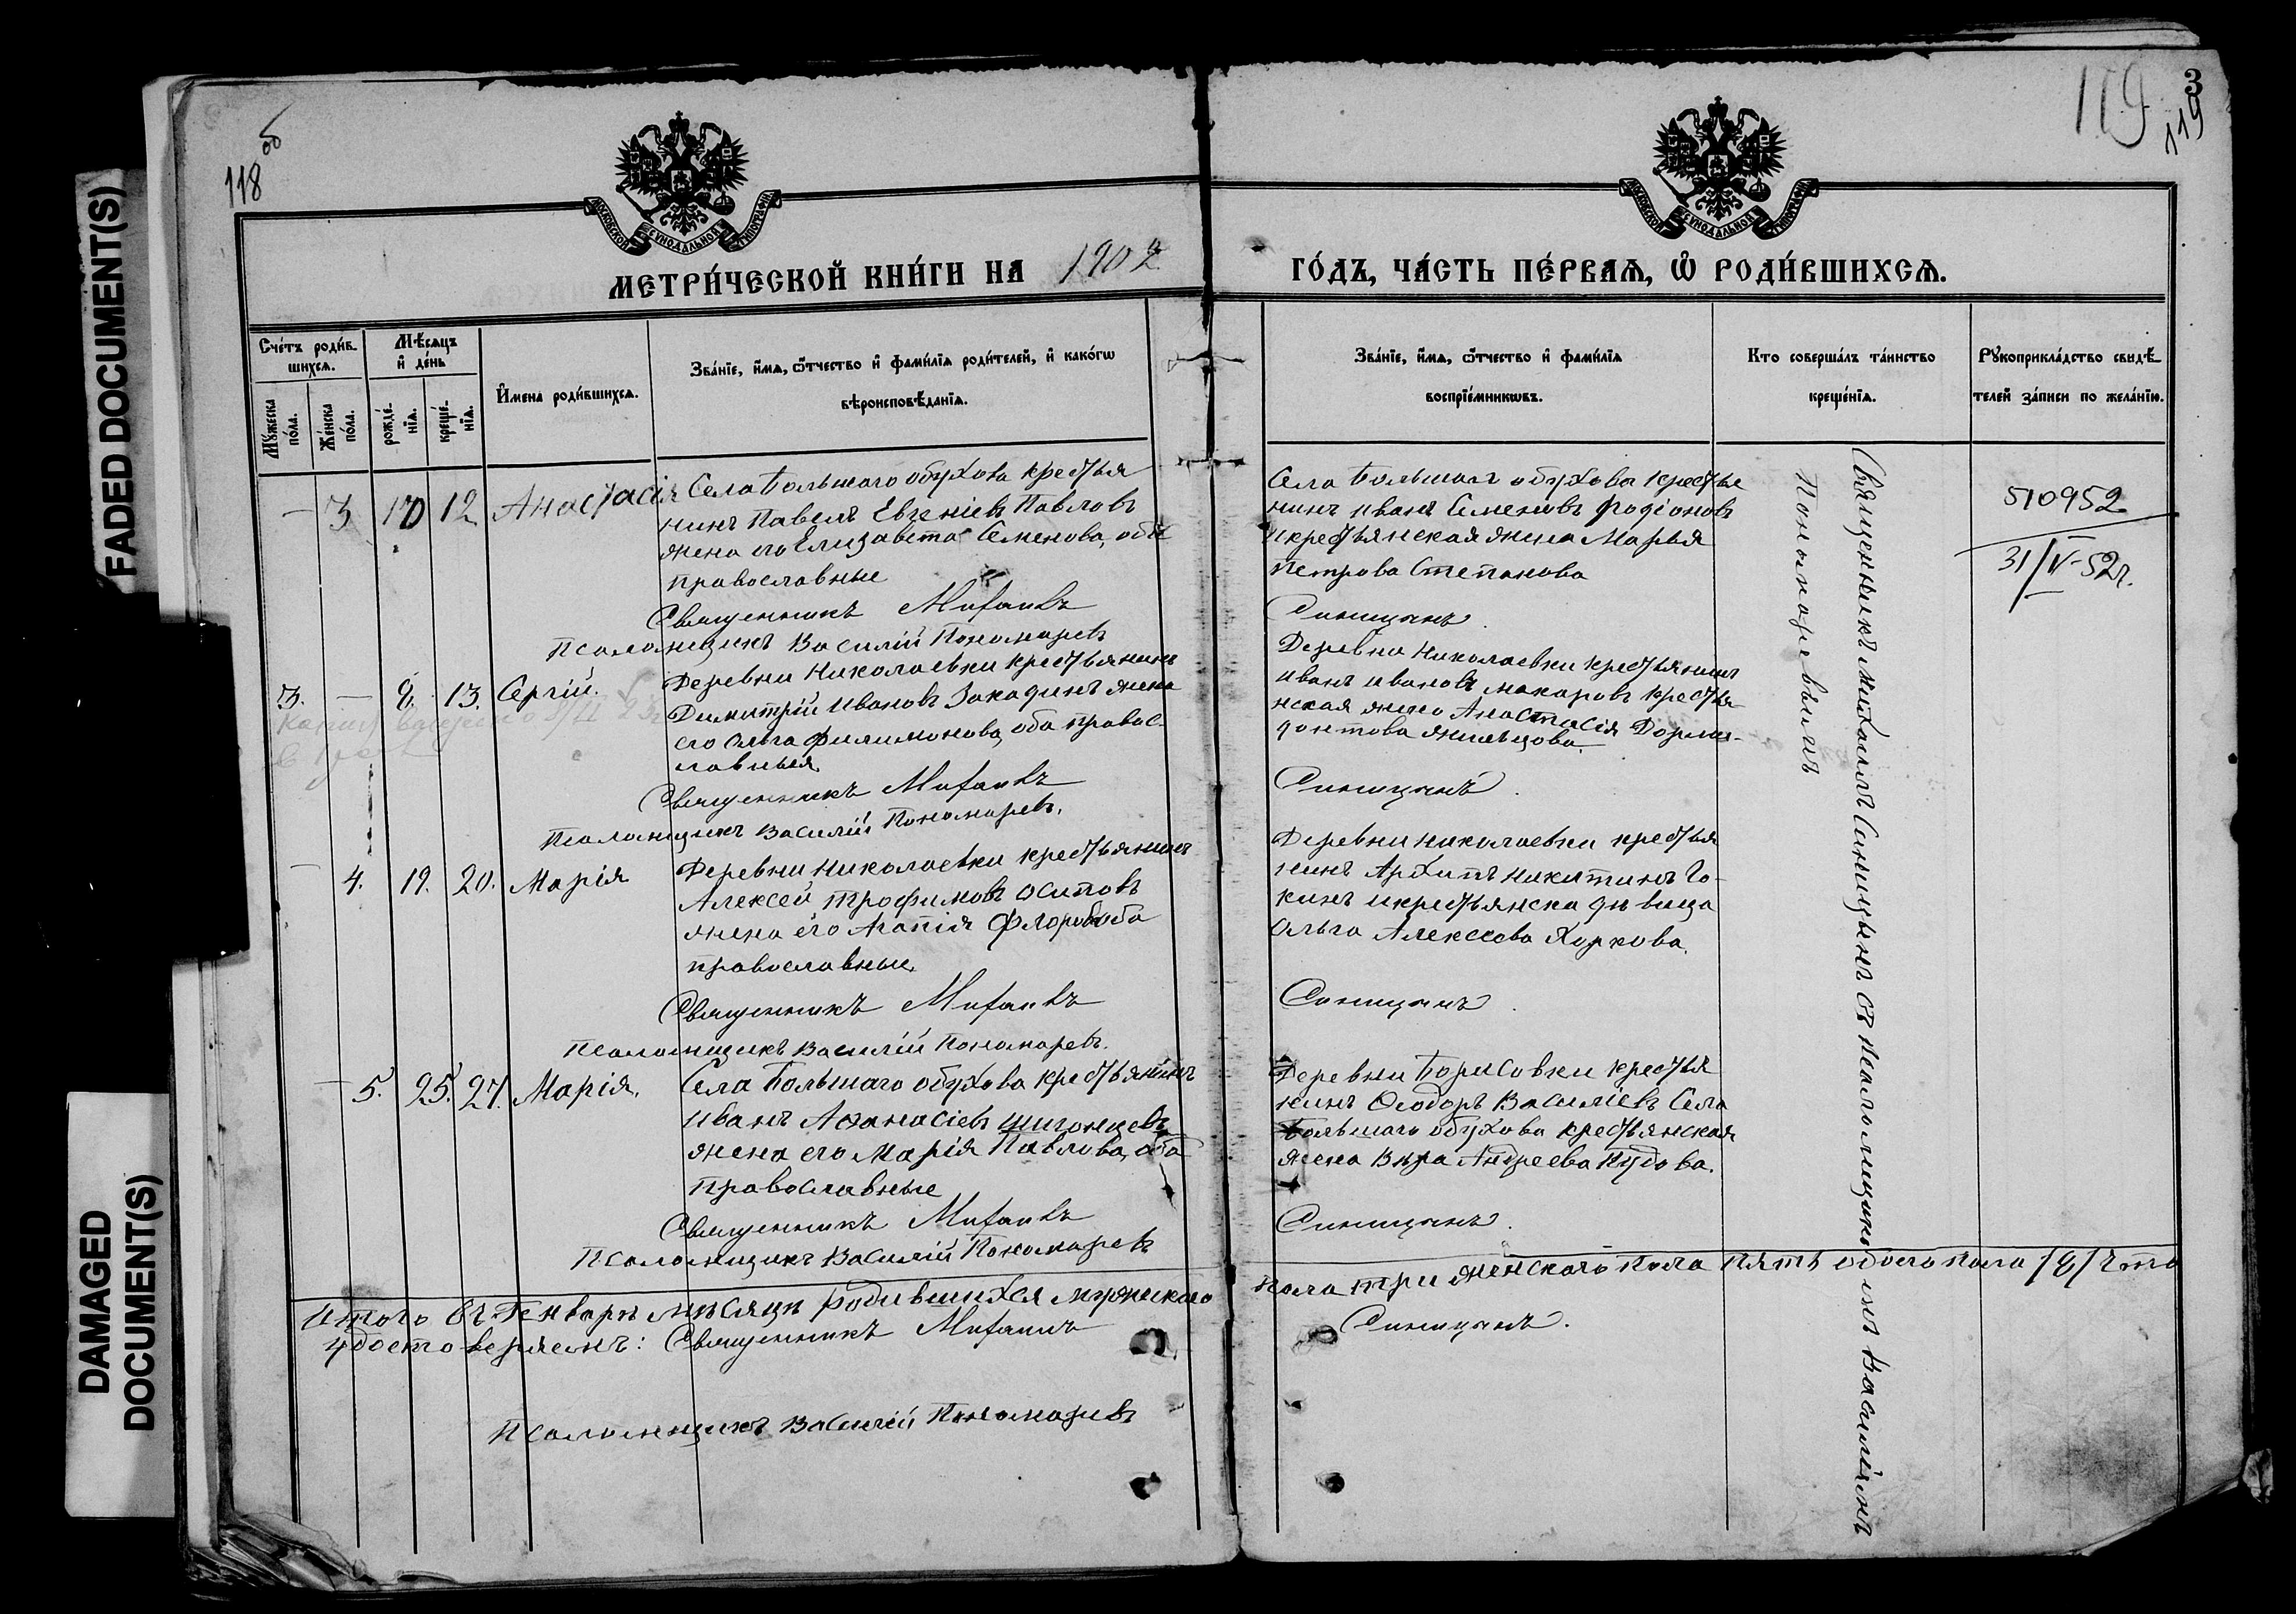 FADED DOCUMENT(S)
DAMAGED
DOCUMENT(S)
118 об
119
3
119
МОСКОВСКОЙ СУНОДАЛЬНОЙ ТИПОГРАФІИ
МОСКОВСКОЙ СУНОДАЛЬНОЙ ТИПОГРАФІИ
МЕТРИ́ЧЕСКОЙ КНИ́ГИ НА 1902
ГО́ДЪ, ЧА́СТЬ ПЕ́РВАѦ, Ѽ РОДИ́ВШИХСѦ.
Сче́тъ роди́в-
шихсѧ.
Мꙋжеска
по́ла.
Же́нска
по́ла.
Мѣ́сѧцъ
и҆ де́нь
рожде́-
нїѧ.
креще́-
нїѧ.
И҆мена роди́вшихсѧ.
Зва́нїе, и҆́мѧ, ѻ҆́тчество и҆ фами́лїѧ роди́телей, и҆ како́гѡ
вѣроисповѣ́данїѧ.
Зва́нїе, и҆́мѧ, ѻ҆́тчество и҆ фами́лїѧ
воспрїе́мникѡвъ.
Кто соверша́лъ та́инство
креще́нїѧ.
Рꙋкоприкла́дство свидѣ́-
телей за́писи по жела́нїю.
— 3 10 12 Анастасія
Села Большаго обухова крестья
нинъ Павелъ Евгеніевъ Павловъ
жена его Елизавета Семенова, оба
православные
Священникъ Михаилъ
Псаломщикъ Василій Пономаревъ
Села Большаго обухова крестья
нинъ иванъ Семеновъ Родіоновъ
и крестьянская жена Марья
Петрова Степанова
Синицынъ
510952
31/V-52г.
3. — 8. 13. Сергій.
Деревни Николаевки крестьянинъ
Димитрій Ивановъ Закадинъ жена
его ольга филимонова, оба правос-
лавныя
Священникъ Михаилъ
Псаломщикъ Василій Пономаревъ.
Деревни Николаевки крестьянинъ
иванъ ивановъ макаровъ крестья-
нская жена Анастасія Дорми-
донтова
Синицынъ
— 4. 19. 20. Марія
Деревни Николаевки крестьянинъ
Алексей трофимовъ осиповъ
жена его Агапія Флорова оба
православные.
Священникъ Михаилъ
Псаломщикъ Василій Пономаревъ.
Деревни николаевки крестья
нинъ Архипъ никитинъ Го-
кинъ и крестьянска дѣвица
Ольга Алексеева Хоркова.
Синицынъ
— 5. 25. 27. Марія.
Села Большаго обухова крестьянинъ
иванъ Афанасіевъ шигонцевъ
жена его Марія Павлова, оба
Православные
Священникъ Михаилъ
Псаломщикъ Василій Пономаревъ
Деревни Борисовки крестья
нинъ Ѳеодоръ Василіевъ Села
Большаго обухова крестьянская
жена Вѣра Андреева Кудова.
Синицынъ
Священникъ михаилъ Синицынъ съ псаломщикомъ Василіемъ
Пономаревымъ
Итого въ Генварѣ мѣсяцѣ родившихся мужескаго пола три женскаго пола пять обоего пола /8/ что
удостоверяемъ: Священникъ Михаилъ Синицынъ.
Псаломщикъ Василій Пономаревъ